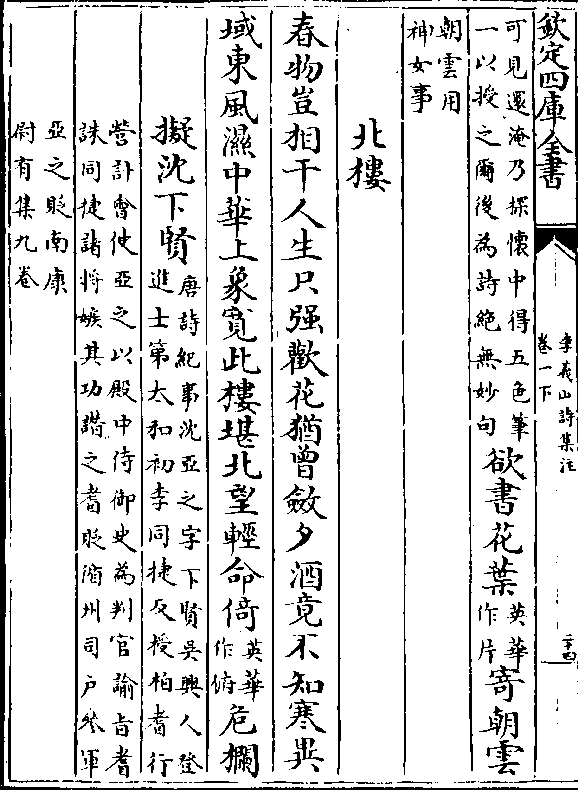 欽定四庫全書
李義山詩集注
卷一下
二十四
可見還淹乃探懷中得五色筆
一以授之爾後為詩絶無妙句
欲書花葉
英華
作片
寄朝雲
朝雲用
神女事
北樓
春物豈相干人生只强歡花猶曾斂夕酒竟不知寒異
域東風濕中華上象寛此樓堪北望輕命倚
英華
作俯
危欄
擬沈下賢
唐詩紀事沈亞之字下賢吳興人登
進士第太和初李同捷反授柏耆行
營計會使亞之以殿中侍御史為判官諭旨耆
誅同捷諸將嫉其功譖之耆貶循州司户參軍
亞之貶南康
尉有集九卷